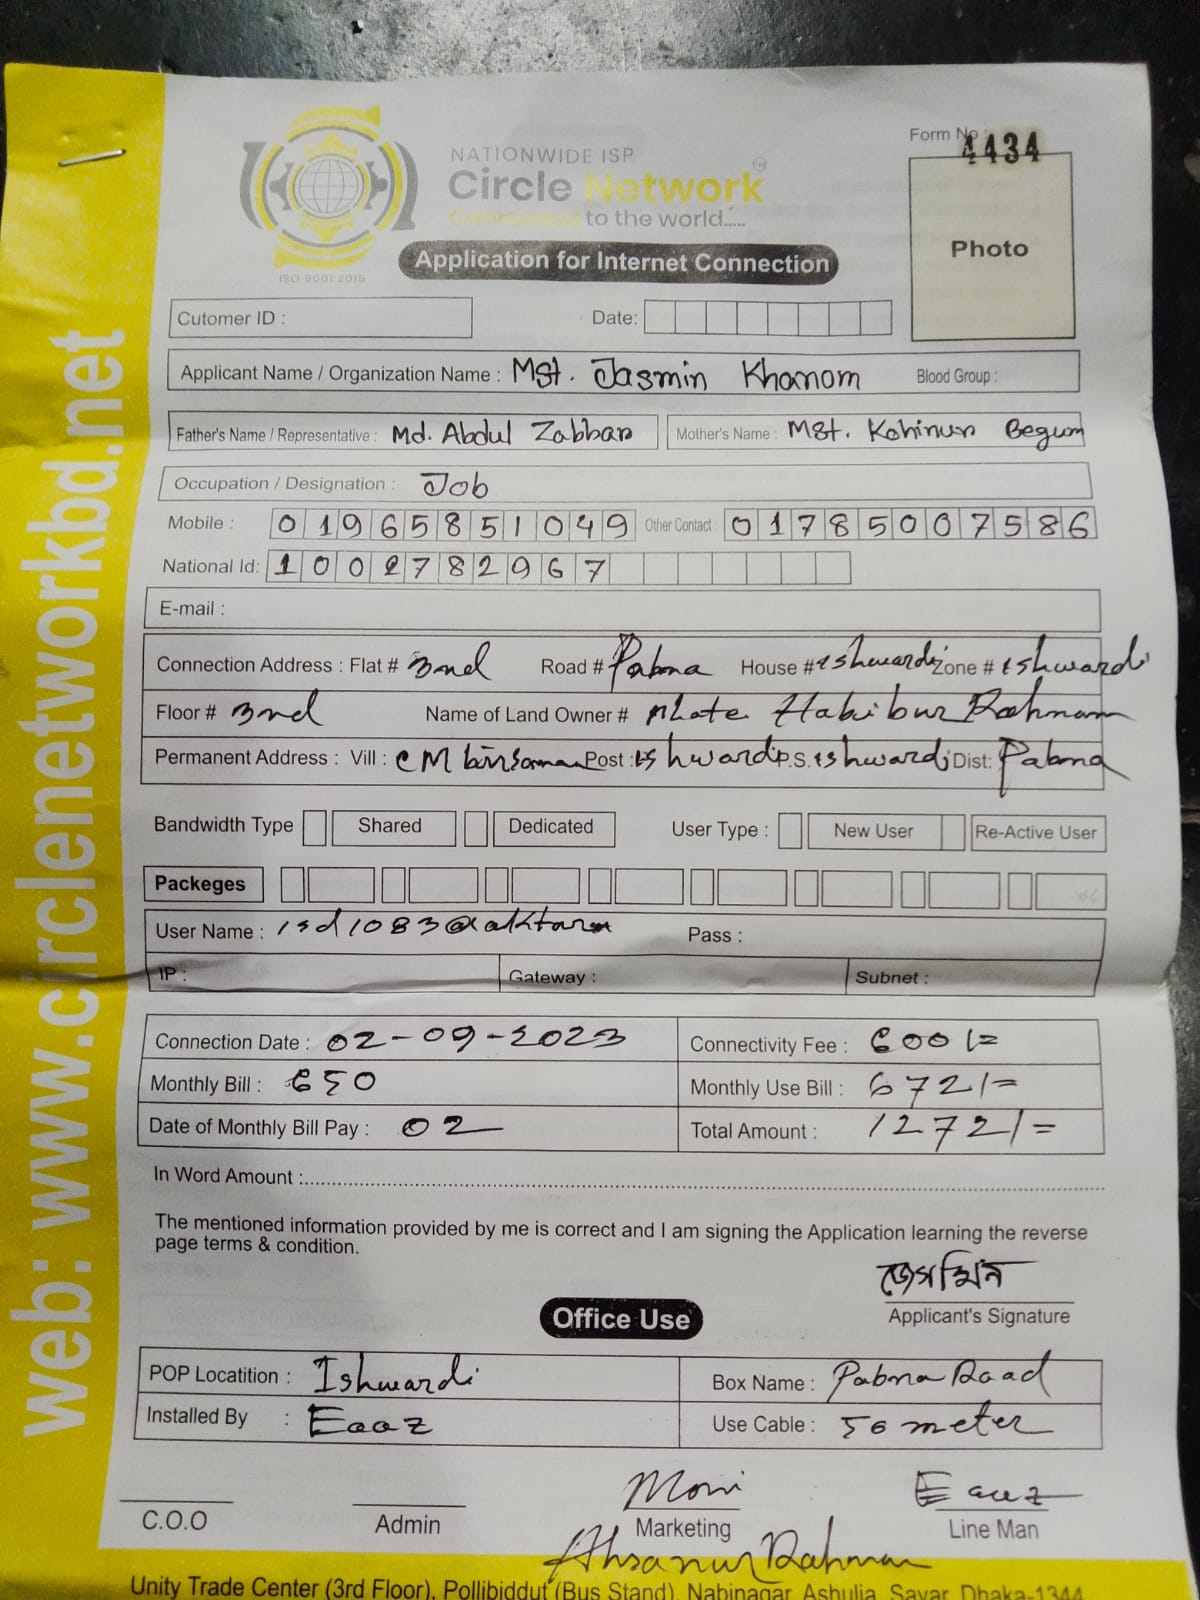 Form No : 4434
NATIONWIDE ISP
Circle Network TM
Connected to the world.....
ISO 9001:2015
Application for Internet Connection
Photo
Cutomer ID :
Date:
Applicant Name / Organization Name : Mst. Jasmin Khanom Blood Group :
Father's Name / Representative : Md. Abdul Zabbar Mother's Name : Mst. Kohinur Begum
Occupation / Designation : Job
Mobile : 01965851049 Other Contact : 01785007586
National Id: 1002782967
E-mail :
Connection Address : Flat # 3nd Road # Pabna House # Ishwardi Zone # Ishwardi
Floor # 3nd Name of Land Owner # Habibur Rahman
Permanent Address : Vill : Post : Ishwardi P.S. Ishwardi Dist: Pabna
Bandwidth Type Shared Dedicated User Type : New User Re-Active User
Packeges
User Name : isd1083@aktarm Pass :
IP : Gateway : Subnet :
Connection Date : 02-09-2023 Connectivity Fee : 600/=
Monthly Bill : 650 Monthly Use Bill : 672/=
Date of Monthly Bill Pay : 02 Total Amount : 1272/=
In Word Amount :
The mentioned information provided by me is correct and I am signing the Application learning the reverse
page terms & condition.
জেসমিন
Applicant's Signature
Office Use
POP Locatition : Ishwardi Box Name : Pabna Road
Installed By : Eaaz Use Cable : 50 meter
Moni Eaaz
C.O.O Admin Marketing Line Man
Ahsanur Rahman
Unity Trade Center (3rd Floor), Pollibiddut (Bus Stand), Nabinagar, Ashulia, Savar, Dhaka-1344
web: www.circlenetworkbd.net